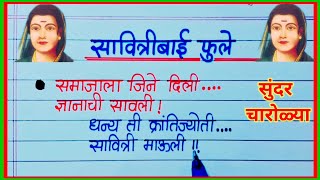 सावित्रीबाई फुले
समाजाला जिने दिली ....
ज्ञानाची सावली !
धन्य ती क्रांतिज्योती ....
सावित्री माऊली !!
सुंदर
चारोळ्या